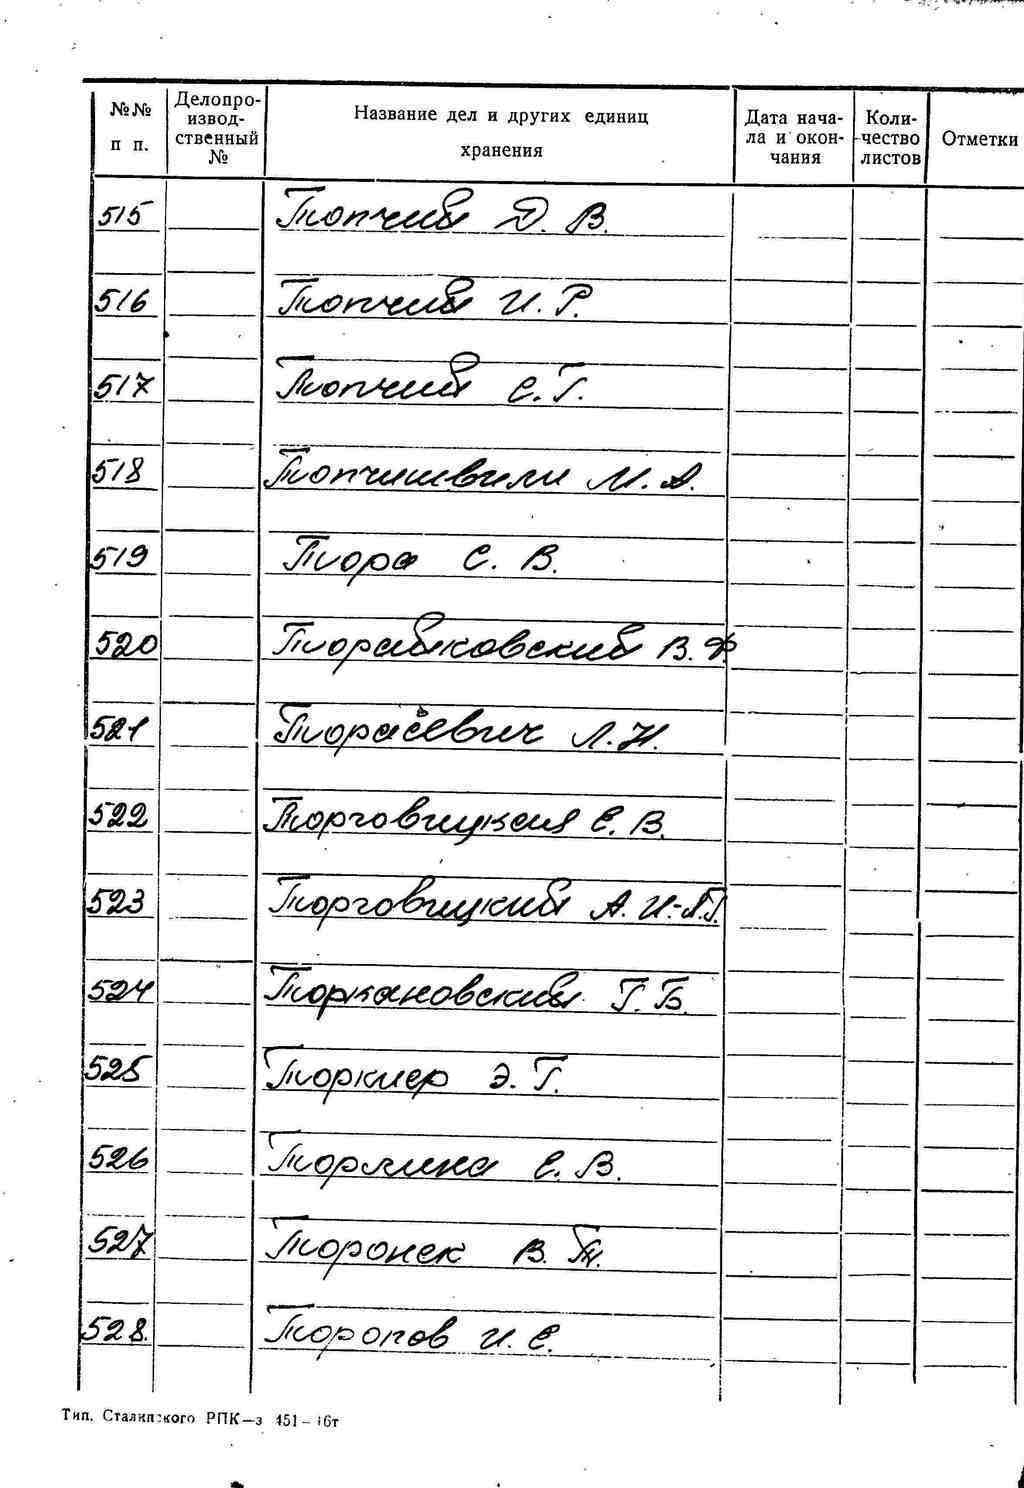 №№ п п.
Делопроизвод-ственный №
Название дел и других единиц хранения
Дата начала и окончания
Количество листов
Отметки
515 Топчий Д. В.
516 Топчий И. Р.
517 Топчий С. Г.
518 Топчишвили М. А.
519 Тора С. В.
520 Торайковский В. Ф.
521 Торасевич Л. Н.
522 Торговицкая Е. В.
523 Торговицкий А. И.-Л.Г.
524 Торкановский Г. Б.
525 Торкиер Э. Г.
526 Тормина Е. В.
527 Торонек В. Т.
528. Торопов И. Е.
Тип. Сталинского РПК—з 451—46т